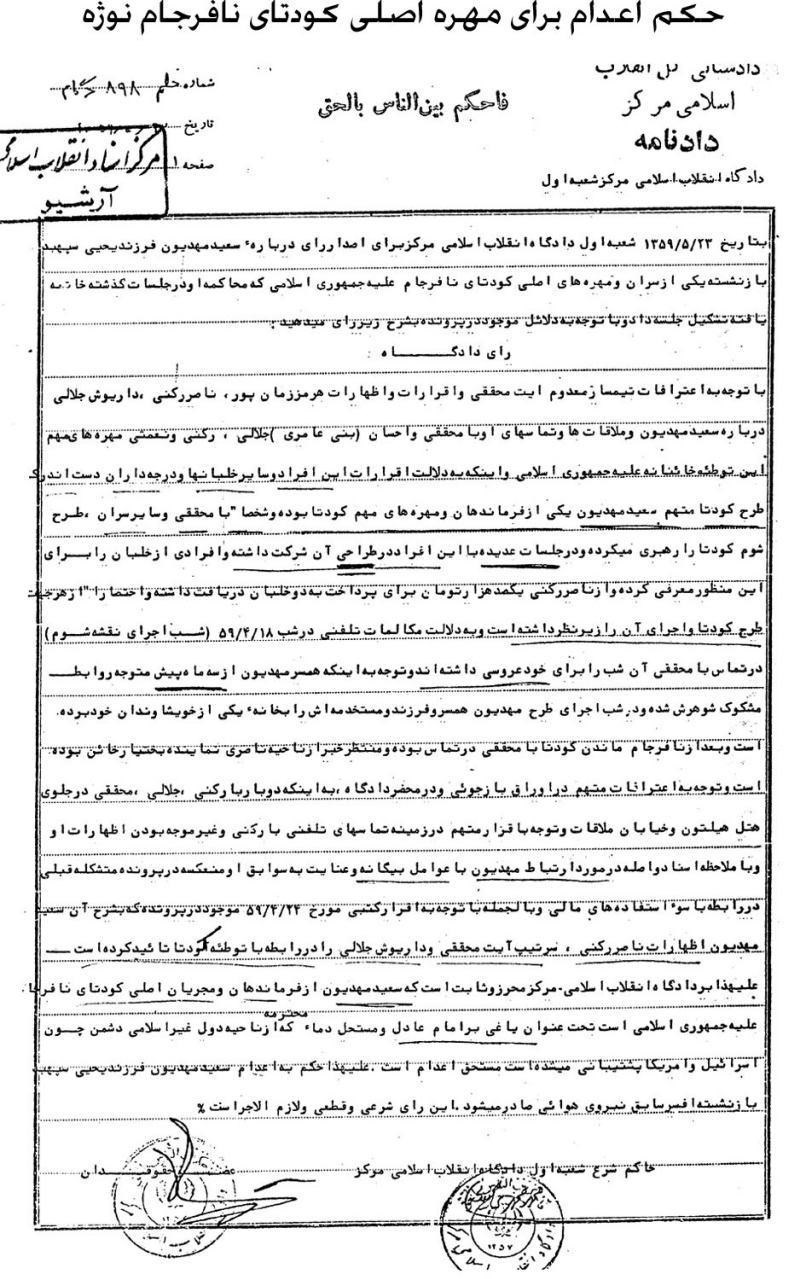 حکم اعدام برای مهره اصلی کودتای نافرجام نوژه
دادستانی کل انقلاب
اسلامی مرکز
دادنامه
دادگاه انقلاب اسلامی مرکز شعبه اول
فاحکم بین الناس بالحق
شماره حکم ۸۹۸
تاریخ
صفحه ۱
مرکز اسناد انقلاب اسلامی
آرشیو
بتاریخ ۱۳۵۹/۵/۲۳ شعبه اول دادگاه انقلاب اسلامی مرکز برای اصدار رای درباره سعید مهدیون فرزند یحیی سپهبد
بازنشسته یکی از سران و مهره های اصلی کودتای نافرجام علیه جمهوری اسلامی که محاکمه او در جلسات گذشته خاتمه
یافته تشکیل جلسه داد و با توجه به دلائل موجود در پرونده بشرح زیر رای میدهد :
رای دادگـــــــاه :
با توجه به اعترافات تیمسار معدوم آیت محققی و اقرارات و اظهارات هرمز زمان پور ، ناصر رکنی ، داریوش جلالی
درباره سعید مهدیون و ملاقات ها و تماسهای او با محققی و احسان (بنی عامری) جلالی ، رکنی و نعمتی مهره های مهم
این توطئه خائنانه علیه جمهوری اسلامی و اینکه به دلالت اقرارات این افراد و سایر خلبانها و درجه داران دست اندرک
طرح کودتا متهم سعید مهدیون یکی از فرماندهان و مهره های مهم کودتا بوده و شخصا" با محققی و سایر سران ، طرح
شوم کودتا را رهبری میکرده و در جلسات عدیده با این افراد در طراحی آن شرکت داشته و افرادی از خلبان را بـــرای
این منظور معرفی کرده و از ناصر رکنی یکصد هزار تومان برای پرداخت به دو خلبان دریافت داشته و احتمارا" از هرجهت
طرح کودتا و اجرای آن را زیر نظر داشته است و به دلالت مکالمات تلفنی در شب ۵۹/۴/۱۸ (شــب اجرای نقشه شــوم)
در تماس با محققی آن شب را برای خود عروسی داشته اند و توجه به اینکه همسر مهدیون از سه ماه پیش متوجه روابطــ
مشکوک شوهرش شده و در شب اجرای طرح مهدیون همسر و فرزند و مستخدمه اش را بخانه یکی از خویشاوندان خود برده
است و بعد از نافرجام ماندن کودتا با محققی در تماس بوده و منتظر خبر از ناحیه ناصری نماینده بختیار خائن بوده
است و توجه به اعترافات متهم در اوراق بازجوئی و در محضر دادگاه ، به اینکه دوبار با رکنی ، جلالی ، محققی در جلوی
هتل هیلتون و خیابان ملاقات و توجه با قرار متهم در زمینه تماسهای تلفنی با رکنی و غیر موجه بودن اظهارات او
و با ملاحظه اسناد واصله در مورد ارتباط مهدیون با عوامل بیگانه و عنایت به سوابق او منعکسه در پرونده متشکله قبلی
در رابطه با سوء استفاده های مالی و بالجمله با توجه به اقرار کتبی مورخ ۵۹/۴/۲۴ موجود در پرونده که بشرح آن سعید
مهدیون اظهارات ناصر رکنی ، سرتیپ آیت محققی و داریوش جلالی را در رابطه با توطئه کودتا تائید کرده است ــ
علیهذا بر دادگاه انقلاب اسلامی مرکز محرز و ثابت است که سعید مهدیون از فرماندهان و مجریان اصلی کودتای نافرجا
علیه جمهوری اسلامی است تحت عنوان یاغی بر امام عادل و مستحل دماء محترمه که از ناحیه دول غیر اسلامی دشمن چــون
اسرائیل و امریکا پشتیبانی میشده است مستحق اعدام است . علیهذا حکم به اعدام سعید مهدیون فرزند یحیی سپهبد
بازنشسته افسر سابق نیروی هوائی صادر میشود . این رای شرعی و قطعی و لازم الاجراست %
حاکم شرع شعبه اول دادگاه انقلاب اسلامی مرکز
حقوقــــدان
۱۳۵۷